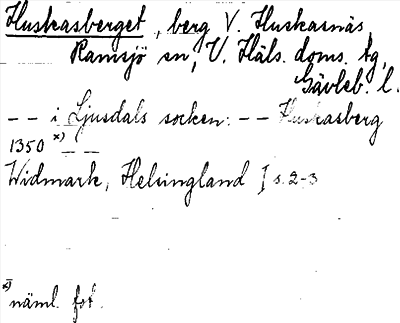 Huskasberget, berg V. Huskasnäs
Ramsjö sn, V. Häls. doms. tg,
Gävleb. l.
-- i Ljusdals socken: -- Huskasberg
1350 x) --
Widmark, Helsingland I s. 2-3
x) näml. fot.